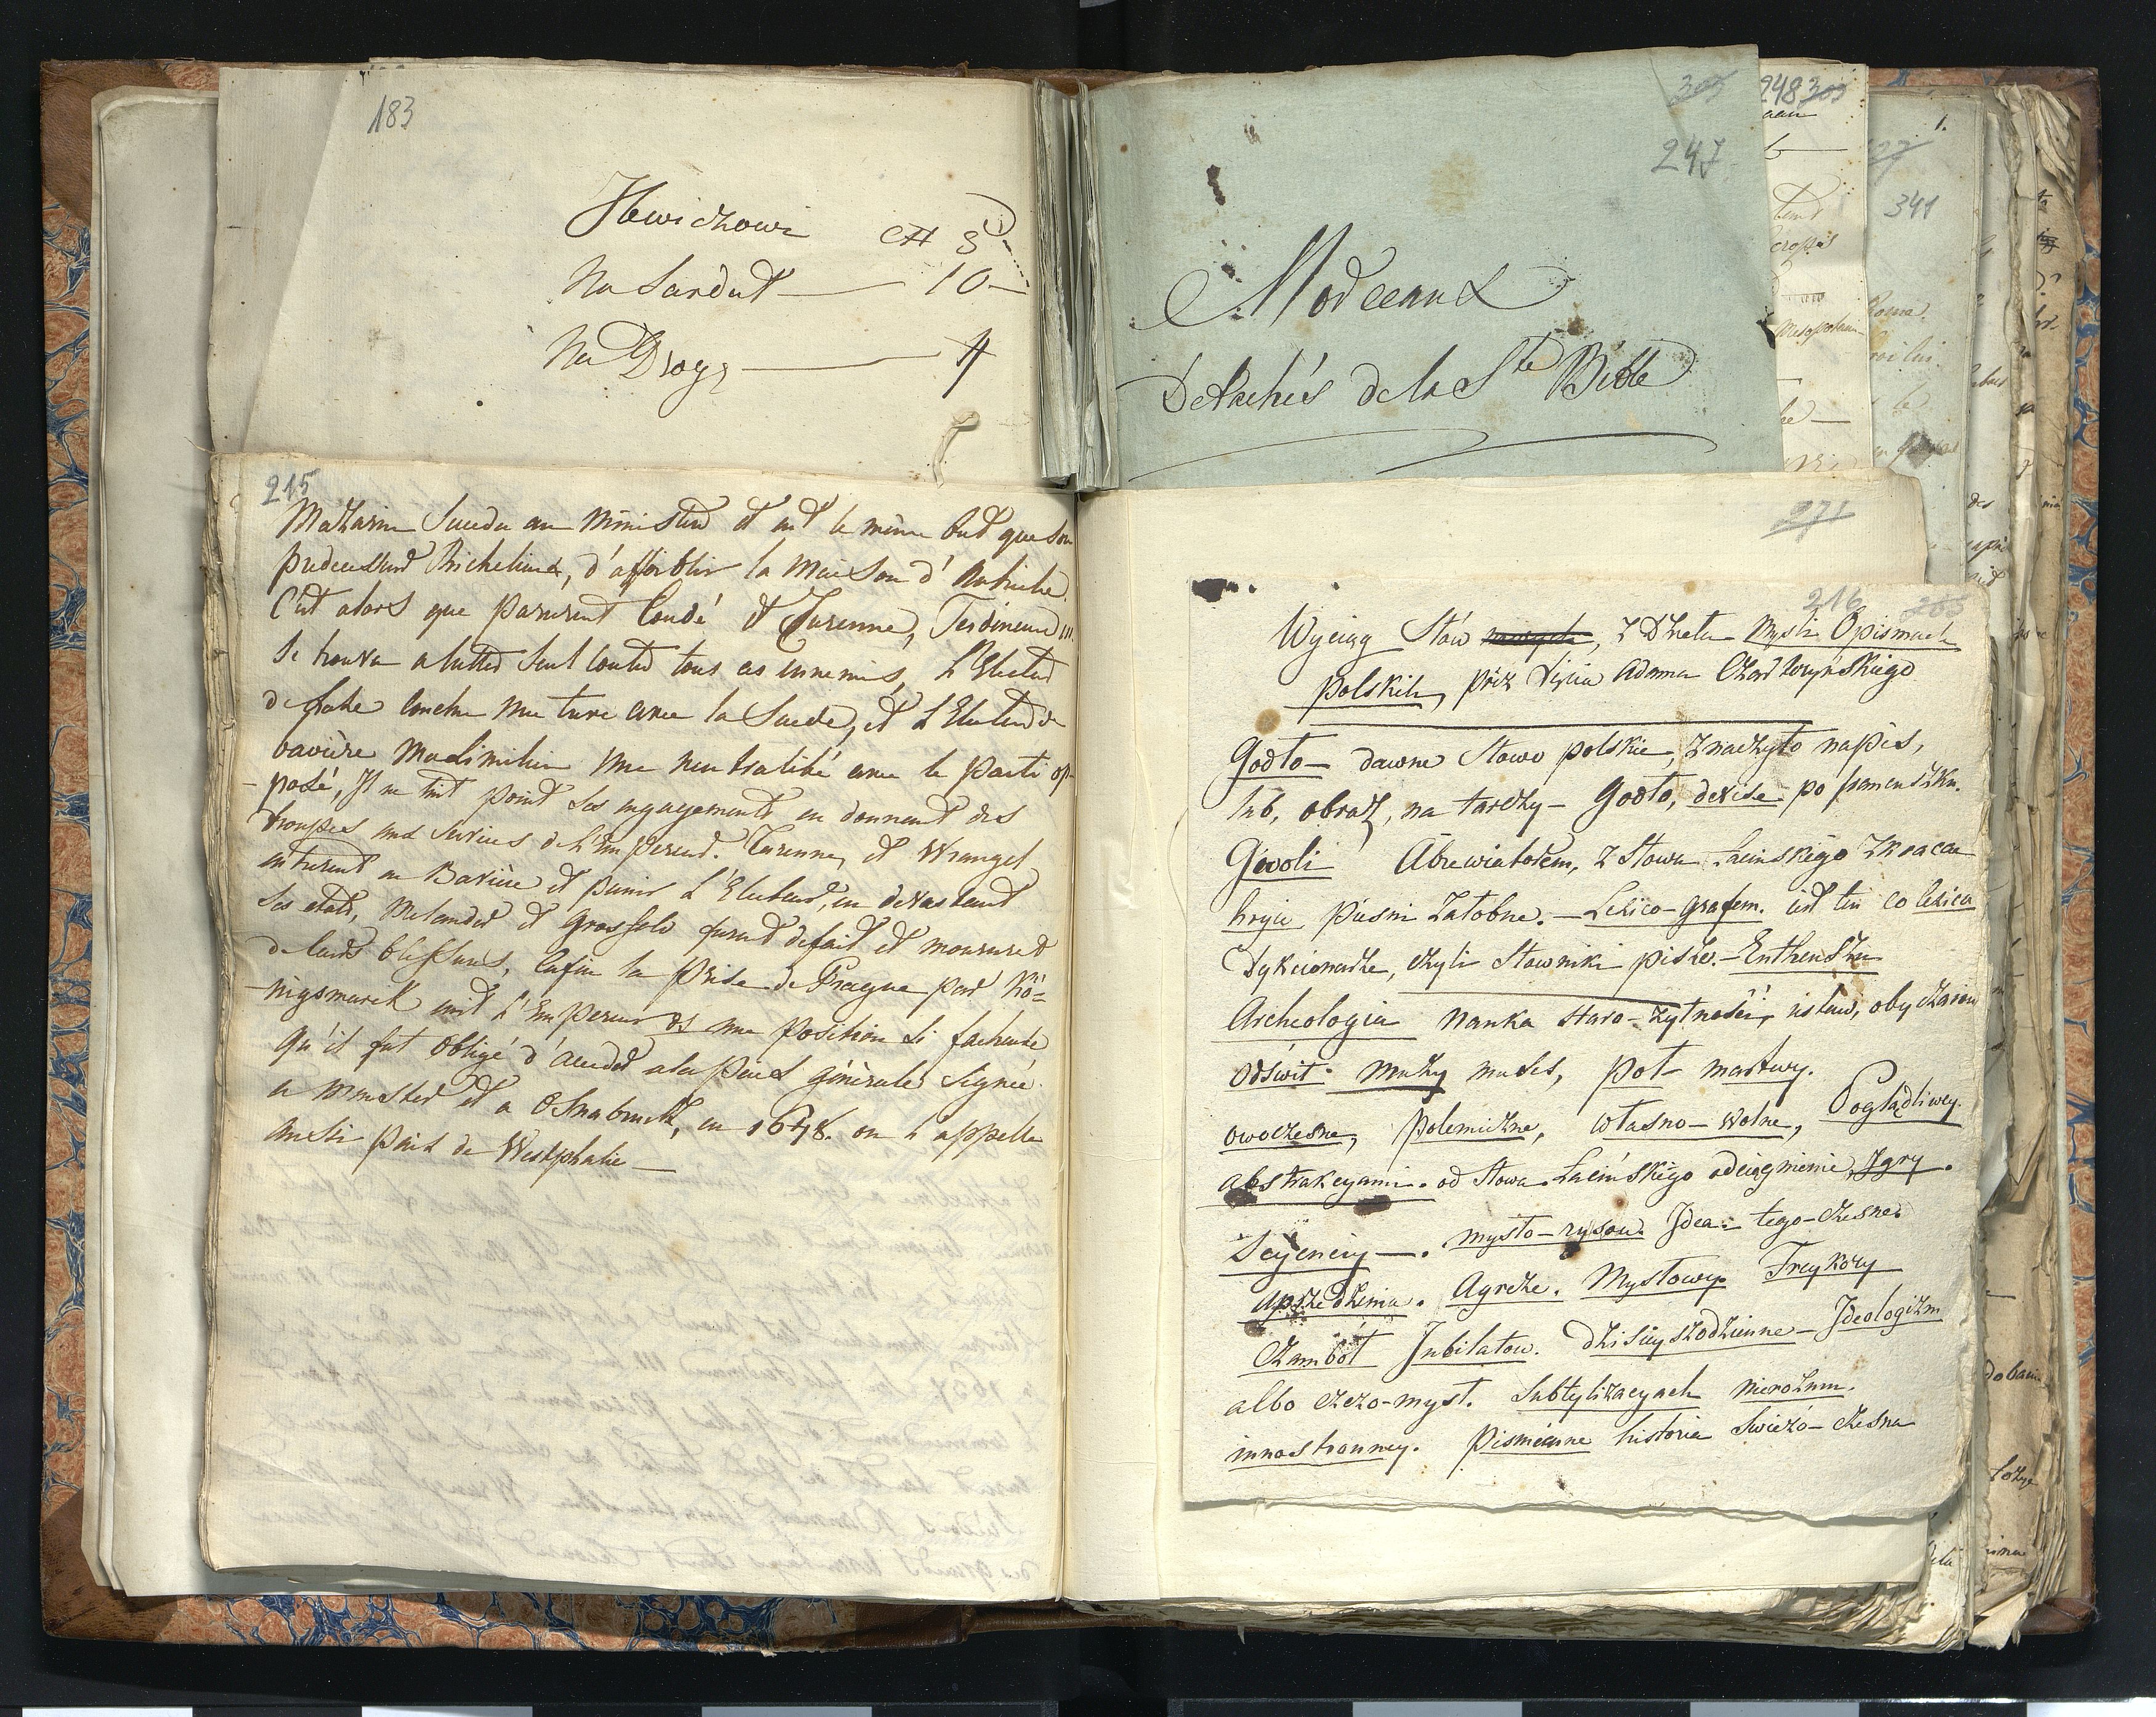 183
Ilewiczowi # 3
Na Sandut — 10 —
Na Drogę — 4
215
Mazarin succda au Ministerd et eut le même but que son
predecesseur Richelieux, d'affoiblir la Maison d'Autriche.
C'est alors que parurent Condé et Turenne, Ferdinand III.
se trouva a lutter seul contre tous ces ennemis, L'Electeur
de saxe conclu une treve avec la Suede, et L'Electeur de
bavière Maximilien une neutralité avec le parti op-
-posé, Il ne tint point ses engagements en donnant des
troupes aux services de l'Empereur. Turenne, et Wrangel
entrerent en Bavière et punir L'Electeur, en devastant
ses etats, Melander et Grosfeld furent defait et moururet
de leurs blessures, Enfin la prise de Prague par Kö=
-nigsmarck mit L'Empereur ds une position si facheuse
qu'il fut obligé d'acceder a la paix générale signée
a Munster et a Osnabruck, en 1648. on l'appelle
aussi paix de Westphalie —
305
247
Morceaux
Détachés de la Ste Bible
248 305
341
1.
271
216 265
Wyciąg Słów nowych, z Dzieła Myśli O pismach
polskich, przez Xięcia Adama Czartoryńskiego
Godło — dawne słowo polskie, znaczyło napis,
lub, obraz, na tarczy — Godło, devise po francuszku.
Gwoli Abrewiatorem, z słowa Łacinskiego zkracac
hryie piesni żałobne. — Lexico-grafem. iest ten co lexica
Dykcionarze, czyli słowniki pisze. — Enthenszkn
Archeologia nauka staro-żytnośći, ustaw, obyczaiow
odświt. muzy muses, poł-martwy.
owoczesne, polemiczne, własno-wolne, Poglądliwey.
abstrakcyami. od słowa Łacińskiego odciągnienie, Igry.
Scyencyi —. mysło-rysow. Idea. tego-czesne.
uprzedzenia. Agreże. Mysłowy. Fraykoży
Czambół Jubilatow. dzisieyszodzienne — Ideologizm
albo czczo-mysł. subtylizacyach nierozum.
innostronney. pismienne historia swieżo-czesna